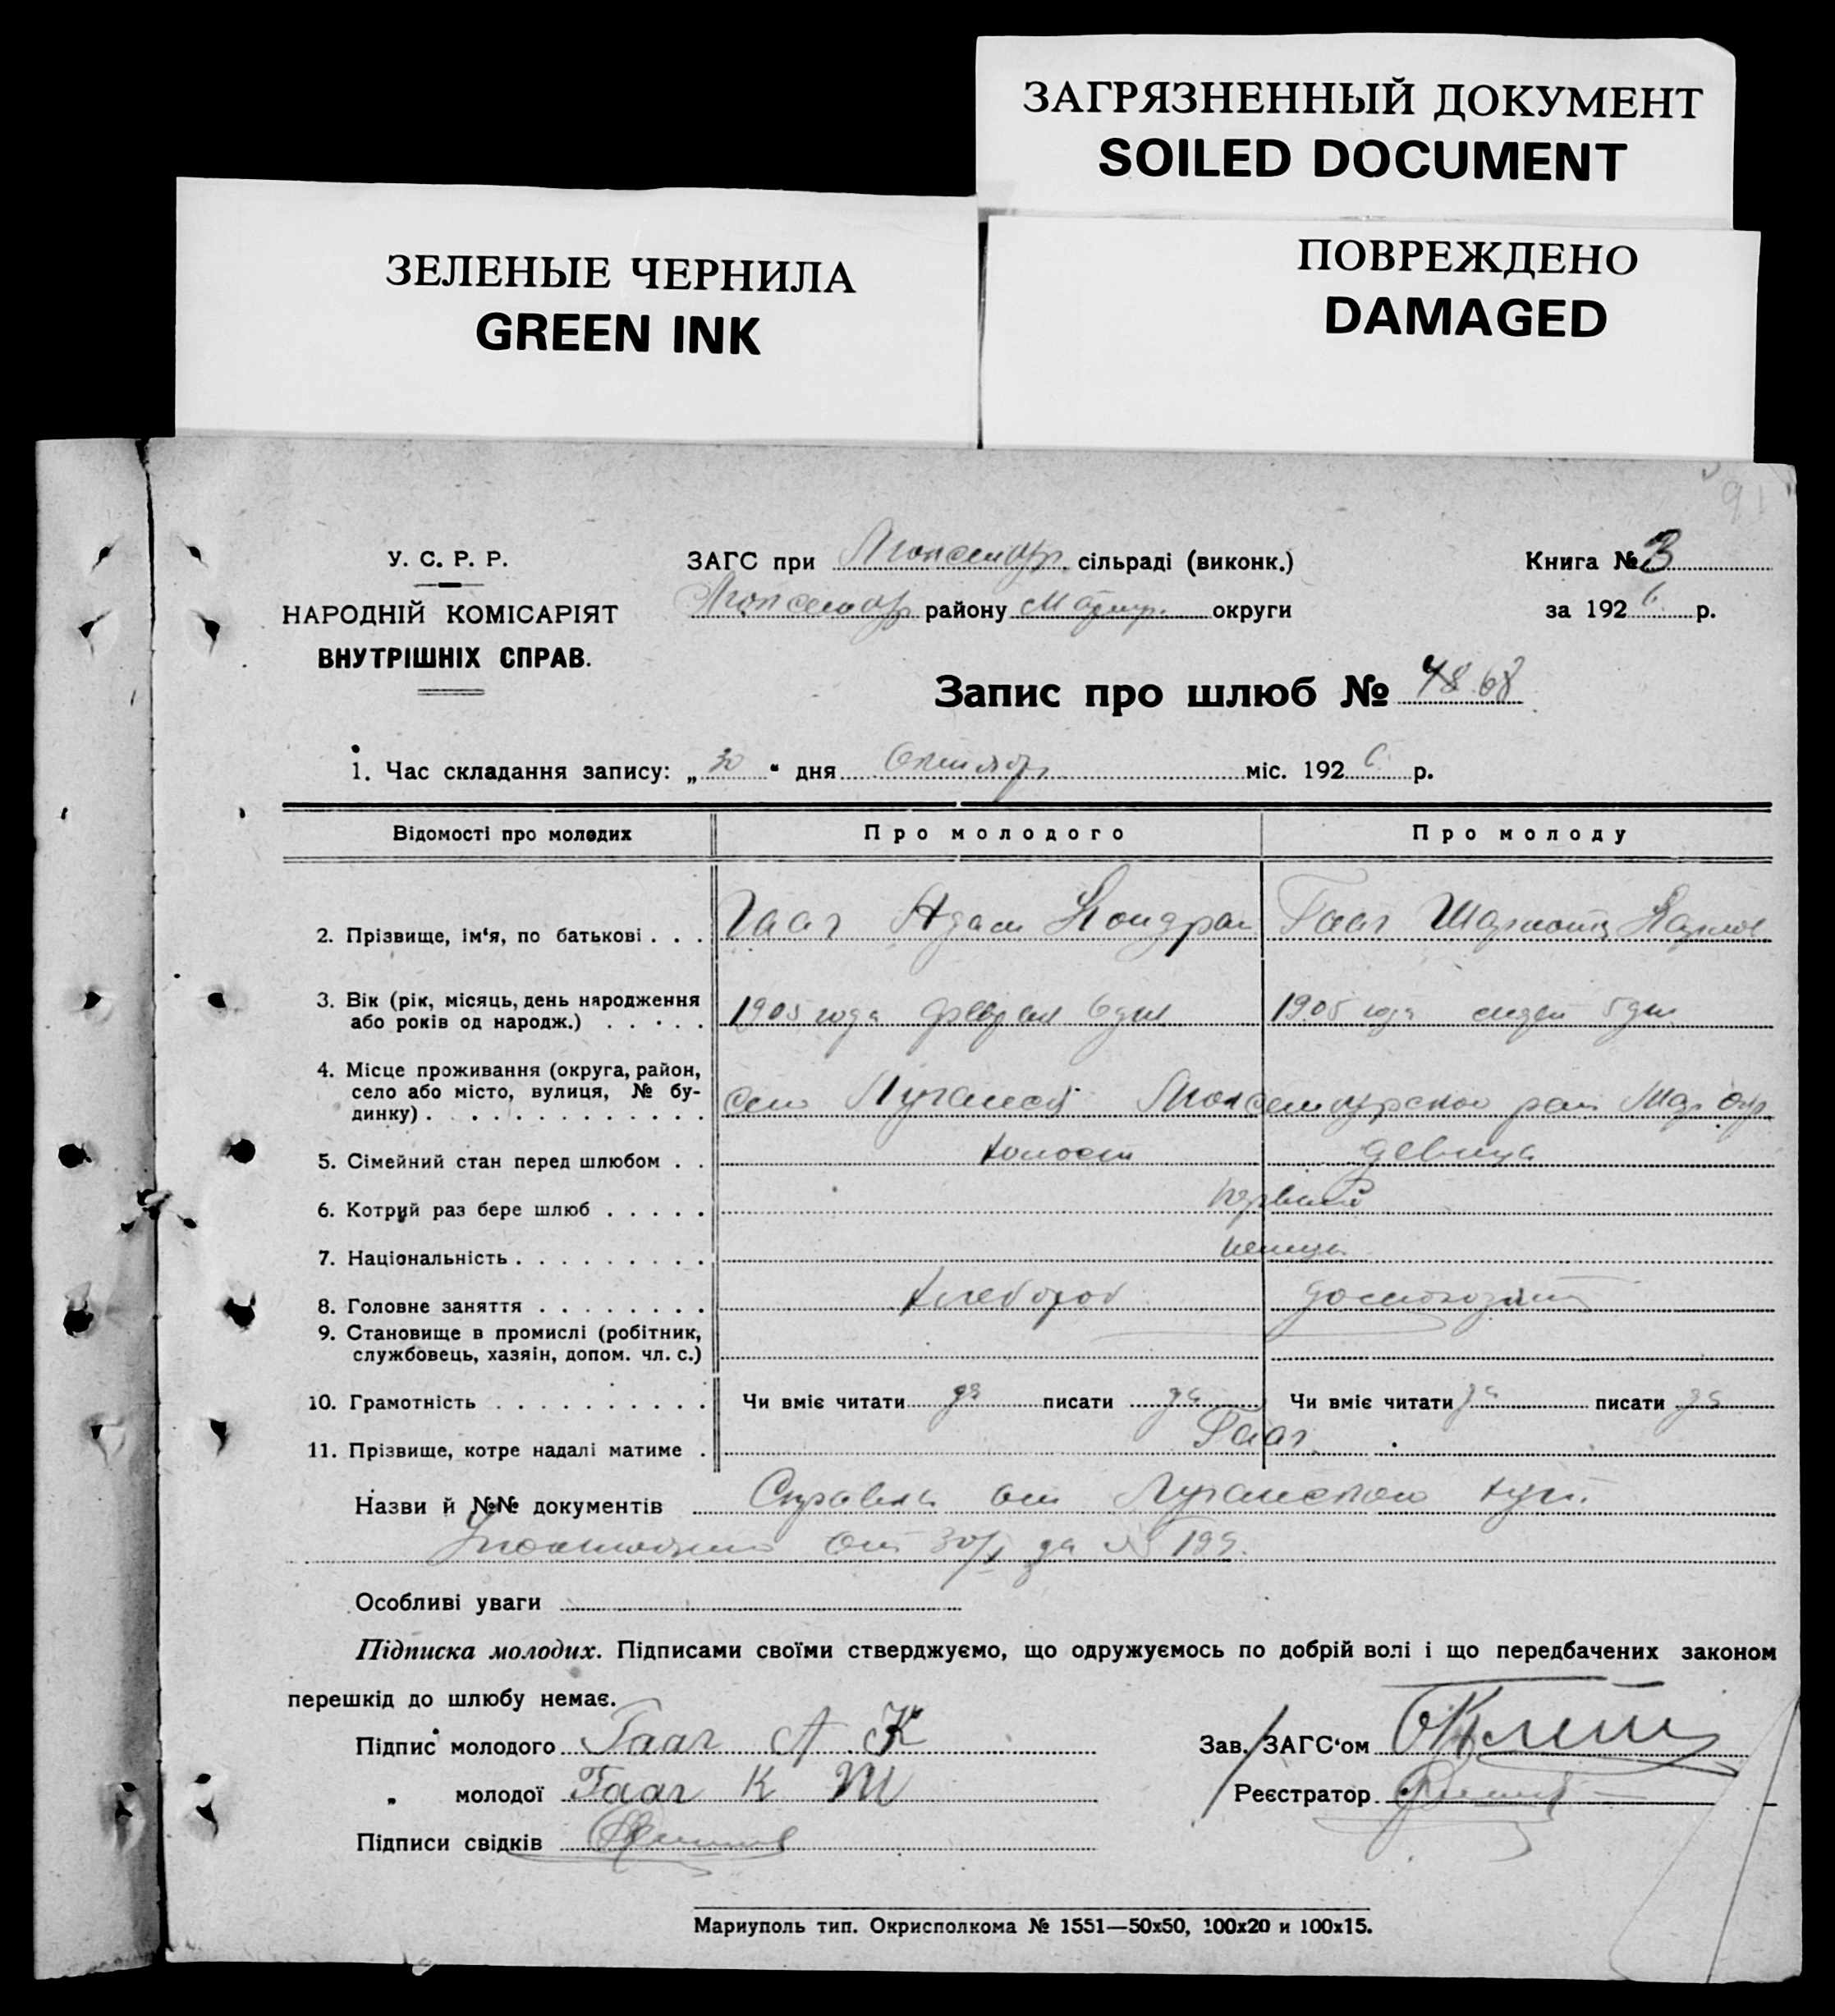 ЗАГРЯЗНЕННЫЙ ДОКУМЕНТ
SOILED DOCUMENT
ЗЕЛЕНЫЕ ЧЕРНИЛА
GREEN INK
ПОВРЕЖДЕНО
DAMAGED
91
У. С. Р. Р.
НАРОДНІЙ КОМІСАРІЯТ
ВНУТРІШНІХ СПРАВ.
ЗАГС при сільраді (виконк.)
району округи
Книга № 3
за 1926 р.
Запис про шлюб № 48 68
1. Час складання запису: „30“ дня Октябр міс. 1926 р.
Відомості про молодих Про молодого Про молоду
2. Прізвище, ім‘я, по батькові . . . Гааг Адам Кондрат Гааг Шарлота Карлов
3. Вік (рік, місяць, день народження
або років од народж.) . . . . . 1905 года феврал 6 дня 1905 года 5 дня
4. Місце проживання (округа, район,
село або місто, вулиця, № бу-
динку) . . . . . . . . . . . . . село Луганск Мар Окр
5. Сімейний стан перед шлюбом . . холост девица
6. Котрий раз бере шлюб . . . . . первый
7. Національність . . . . . . . . . немцы
8. Головне заняття . . . . . . . . хлебороб домохоз
9. Становище в промислі (робітник,
службовець, хазяїн, допом. чл. с.)
10. Грамотність . . . . . . . . . . Чи вміє читати да писати да Чи вміє читати да писати да
11. Прізвище, котре надалі матиме . Гааг
Назви й №№ документів Справка от Луганского
от 30/X за № 199.
Особливі уваги
Підписка молодих. Підписами своїми стверджуємо, що одружуємось по добрій волі і що передбачених законом
перешкід до шлюбу немає.
Підпис молодого Гааг А К
„ молодої Гааг К Ш
Підписи свідків
Зав. ЗАГС‘ом
Реєстратор
Мариуполь тип. Окрисполкома № 1551—50х50, 100х20 и 100х15.